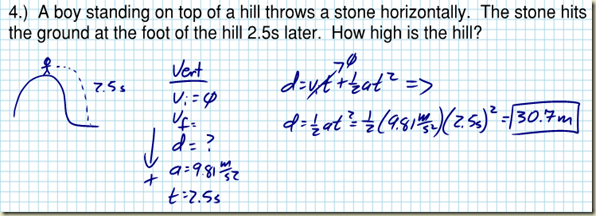 4.) A boy standing on top of a hill throws a stone horizontally. The stone hits
the ground at the foot of the hill 2.5s later. How high is the hill?
2.5s
Vert
Vi = Ø
Vf =
d = ?
+ a = 9.81 m/s2
t = 2.5s
d = vit + ½at² => Ø
d = ½at² = ½(9.81 m/s2)(2.5s)² = 30.7m